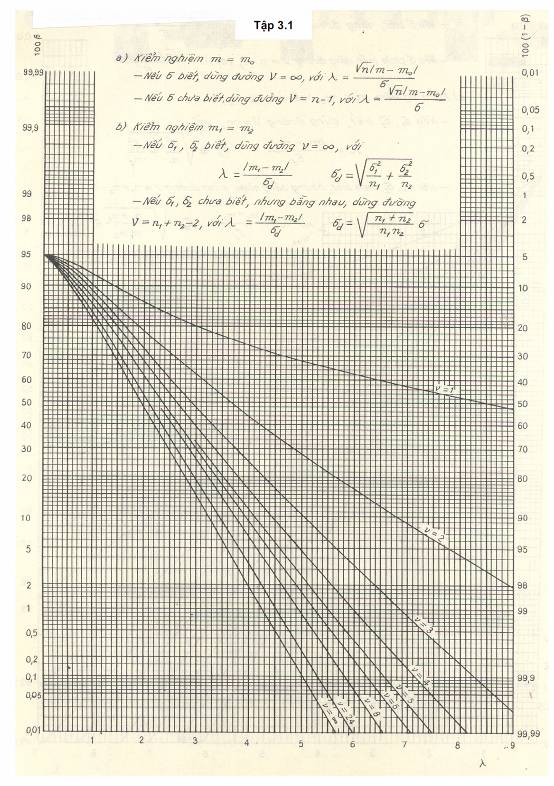 Tập 3.1
a) Kiểm nghiệm m = m₀
— Nếu б biết, dùng đường ν = ∞, với λ = √n|m − m₀| / б
— Nếu б chưa biết, dùng đường ν = n-1, với λ = √n|m − m₀| / б
b) Kiểm nghiệm m₁ = m₂
— Nếu б₁, б₂ biết, dùng đường ν = ∞, với
λ = |m₁ − m₂| / б_d б_d = √(б₁² / n₁ + б₂² / n₂)
— Nếu б₁, б₂ chưa biết, nhưng bằng nhau, dùng đường
ν = n₁ + n₂ − 2, với λ = |m₁ − m₂| / б_d б_d = √((n₁ + n₂) / n₁n₂) б
100 β
99,99
99,9
99
98
95
90
80
70
60
50
40
30
20
10
5
2
1
0,5
0,2
0,1
0,05
0,01
100 (1−β)
0,01
0,05
0,1
0,2
0,5
1
2
5
10
20
30
40
50
60
70
80
90
95
98
99
99,9
99,99
ν = 1
ν = 2
ν = 3
ν = 4
ν = 5
ν = 6
ν = 8
ν = ∞
1 2 3 4 5 6 7 8 9
λ